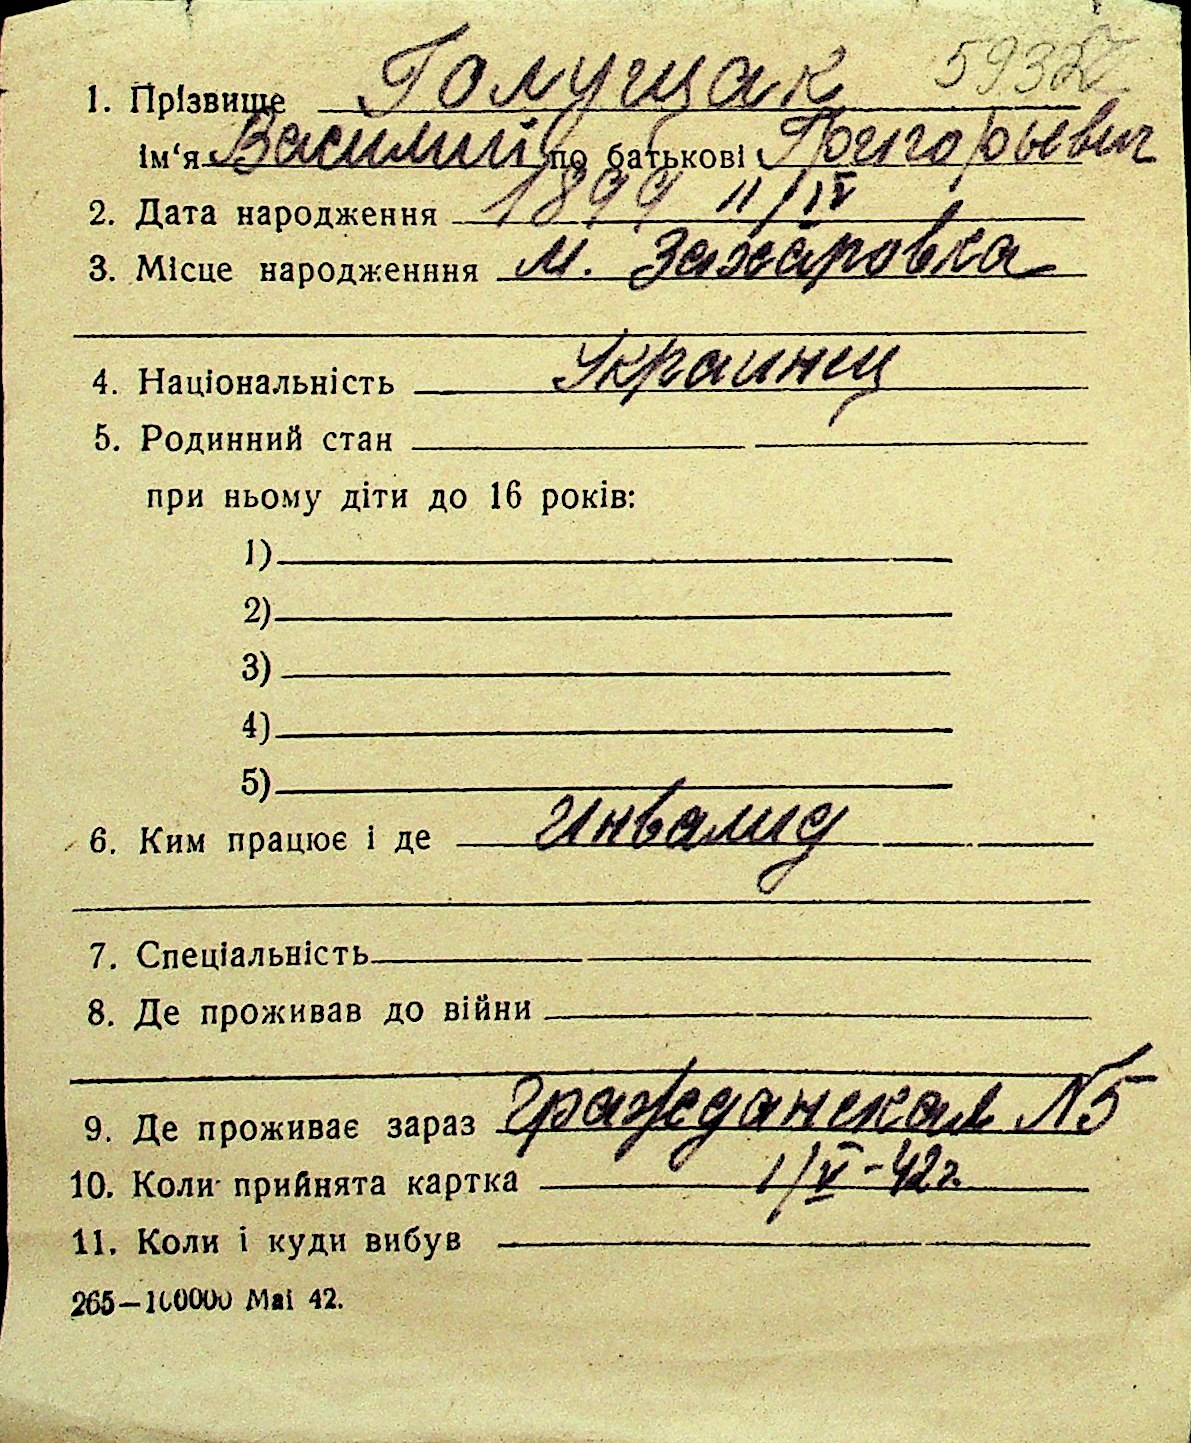 59327
1. Прізвище Голущак
ім‘я Василий по батькові Григорьевич
2. Дата народження 1899 11/IV
3. Місце народженння м. Захаровка
4. Національність Украинец
5. Родинний стан
при ньому діти до 16 років:
1)
2)
3)
4)
5)
6. Ким працює і де инвалид
7. Спеціальність
8. Де проживав до війни
9. Де проживає зараз Гражданская №5
10. Коли прийнята картка 1/V-42г.
11. Коли і куди вибув
265—100000 Маі 42.